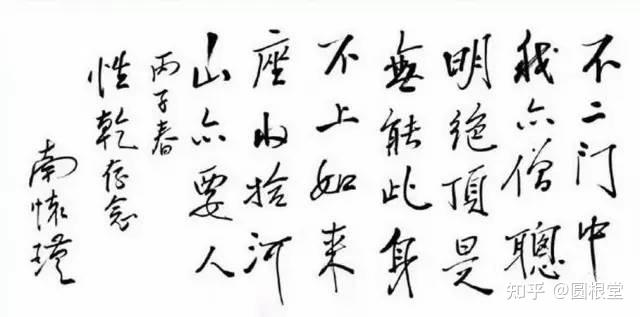 不二门中
我亦僧聰
明絶頂是
無能此身
不上如来
座收拾河
山亦要人
丙子春
性乾存念
南懷瑾
知乎 @圆根堂